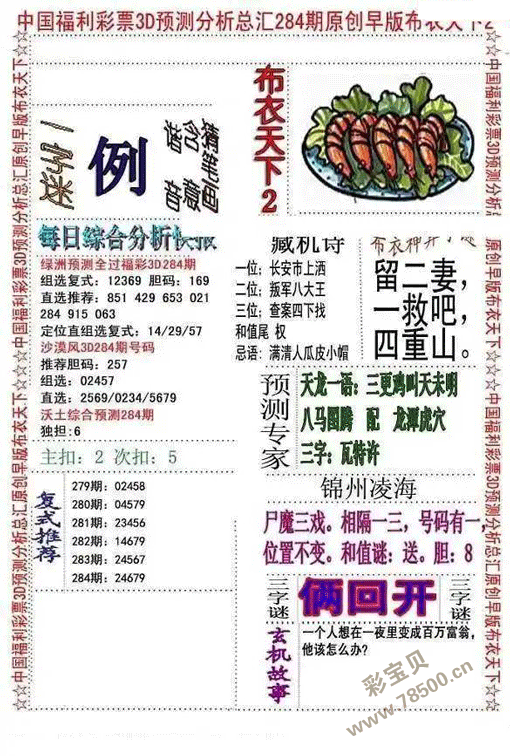 中国福利彩票3D预测分析总汇284期原创早版布衣天下2
☆☆中国福利彩票3D预测分析总汇原创早版布衣天下☆☆
一字谜
例
猜笔画
含意
谐音
布衣天下2
每日综合分析快报
绿洲预测全过福彩3D284期
组选复式：12369 胆码：169
直选推荐：851 429 653 021
284 915 063
定位直组选复式：14/29/57
沙漠风3D284期号码
推荐胆码：257
组选：02457
直选：2569/0234/5679
沃土综合预测284期
独担：6
主扣：2 次扣：5
复式推荐
279期：02458
280期：04579
281期：23456
282期：14679
283期：24567
284期：24679
藏机诗
一位；长安市上洒
二位；叛军八大王
三位；查案四下找
和值尾 权
忌语：满清人瓜皮小帽
布衣神算
留二妻，
一救吧，
四重山。
预测专家
天龙一语：三更鸡叫天未明
八马图腾 配 龙潭虎穴
三字：瓦特许
锦州凌海
尸魔三戏。相隔一三，号码有一，
位置不变。和值谜：送。胆：8
三字谜
俩回开
三字谜
玄机故事
一个人想在一夜里变成百万富翁，
他该怎么办？
彩宝贝
www.78500.cn
☆☆中国福利彩票3D预测分析总汇原创早版布衣天下☆☆